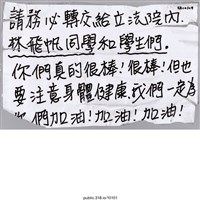 請務必轉交給立法院內
林飛帆同學和學生們。
你們真的很棒!很棒!但也
要注意身體健康.我們一定為
你們加油!加油!加油!
public.318.io/10101